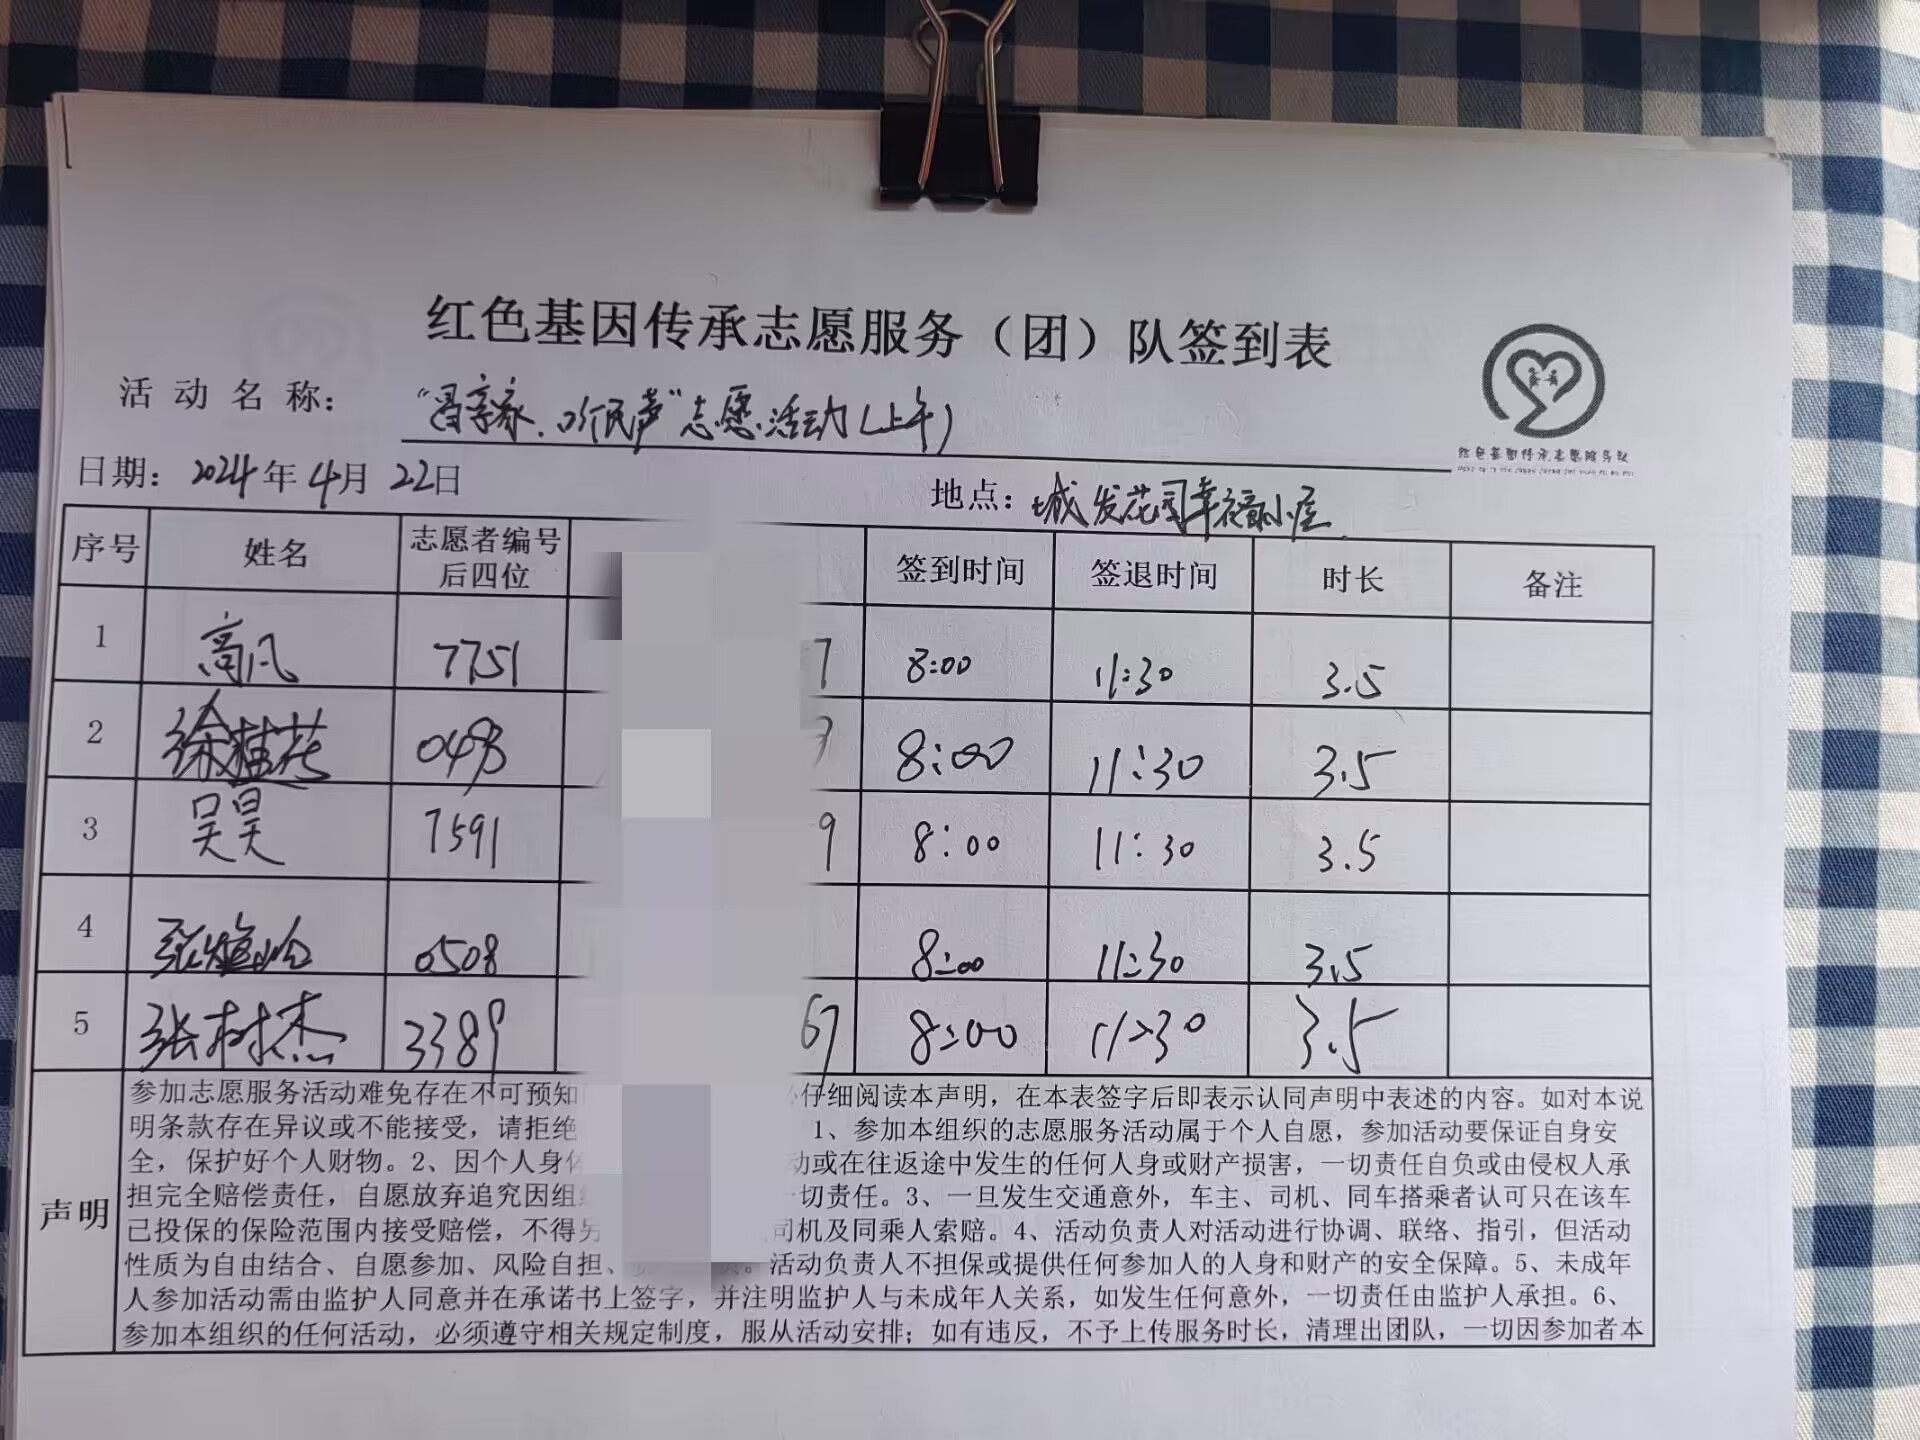 红色基因传承志愿服务（团）队签到表
活动名称：“冒享家、听民声”志愿活动(上午)
红色基因传承志愿服务队
日期：2024年4月22日 地点：城发花园幸福小屋
序号 姓名 志愿者编号后四位 签到时间 签退时间 时长 备注
1 高凡 7751 7 8:00 11:30 3.5
2 徐桂花 0493 8:00 11:30 3.5
3 吴昊 7591 9 8:00 11:30 3.5
4 张 0508 8:00 11:30 3.5
5 张树杰 3389 67 8:00 11:30 3.5
声明
参加志愿服务活动难免存在不可预知 仔细阅读本声明，在本表签字后即表示认同声明中表述的内容。如对本说
明条款存在异议或不能接受，请拒绝 1、参加本组织的志愿服务活动属于个人自愿，参加活动要保证自身安
全，保护好个人财物。2、因个人身体 动或在往返途中发生的任何人身或财产损害，一切责任自负或由侵权人承
担完全赔偿责任，自愿放弃追究因组 一切责任。3、一旦发生交通意外，车主、司机、同车搭乘者认可只在该车
已投保的保险范围内接受赔偿，不得另 司机及同乘人索赔。4、活动负责人对活动进行协调、联络、指引，但活动
性质为自由结合、自愿参加、风险自担、 。活动负责人不担保或提供任何参加人的人身和财产的安全保障。5、未成年
人参加活动需由监护人同意并在承诺书上签字，并注明监护人与未成年人关系，如发生任何意外，一切责任由监护人承担。6、
参加本组织的任何活动，必须遵守相关规定制度，服从活动安排；如有违反，不予上传服务时长，清理出团队，一切因参加者本